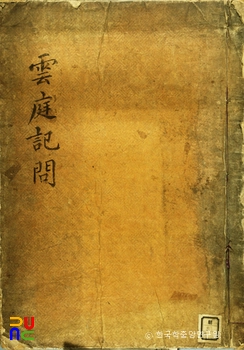 雲庭記問
© 한국학중앙연구원